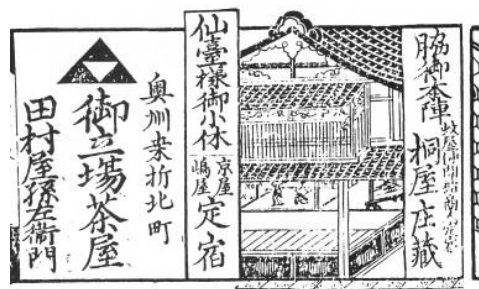 脇御本陣
桐屋庄藏
仙臺様御小休
京屋
嶋屋
定宿
奥州桑折北町
御立場茶屋
田村屋孫左衛門